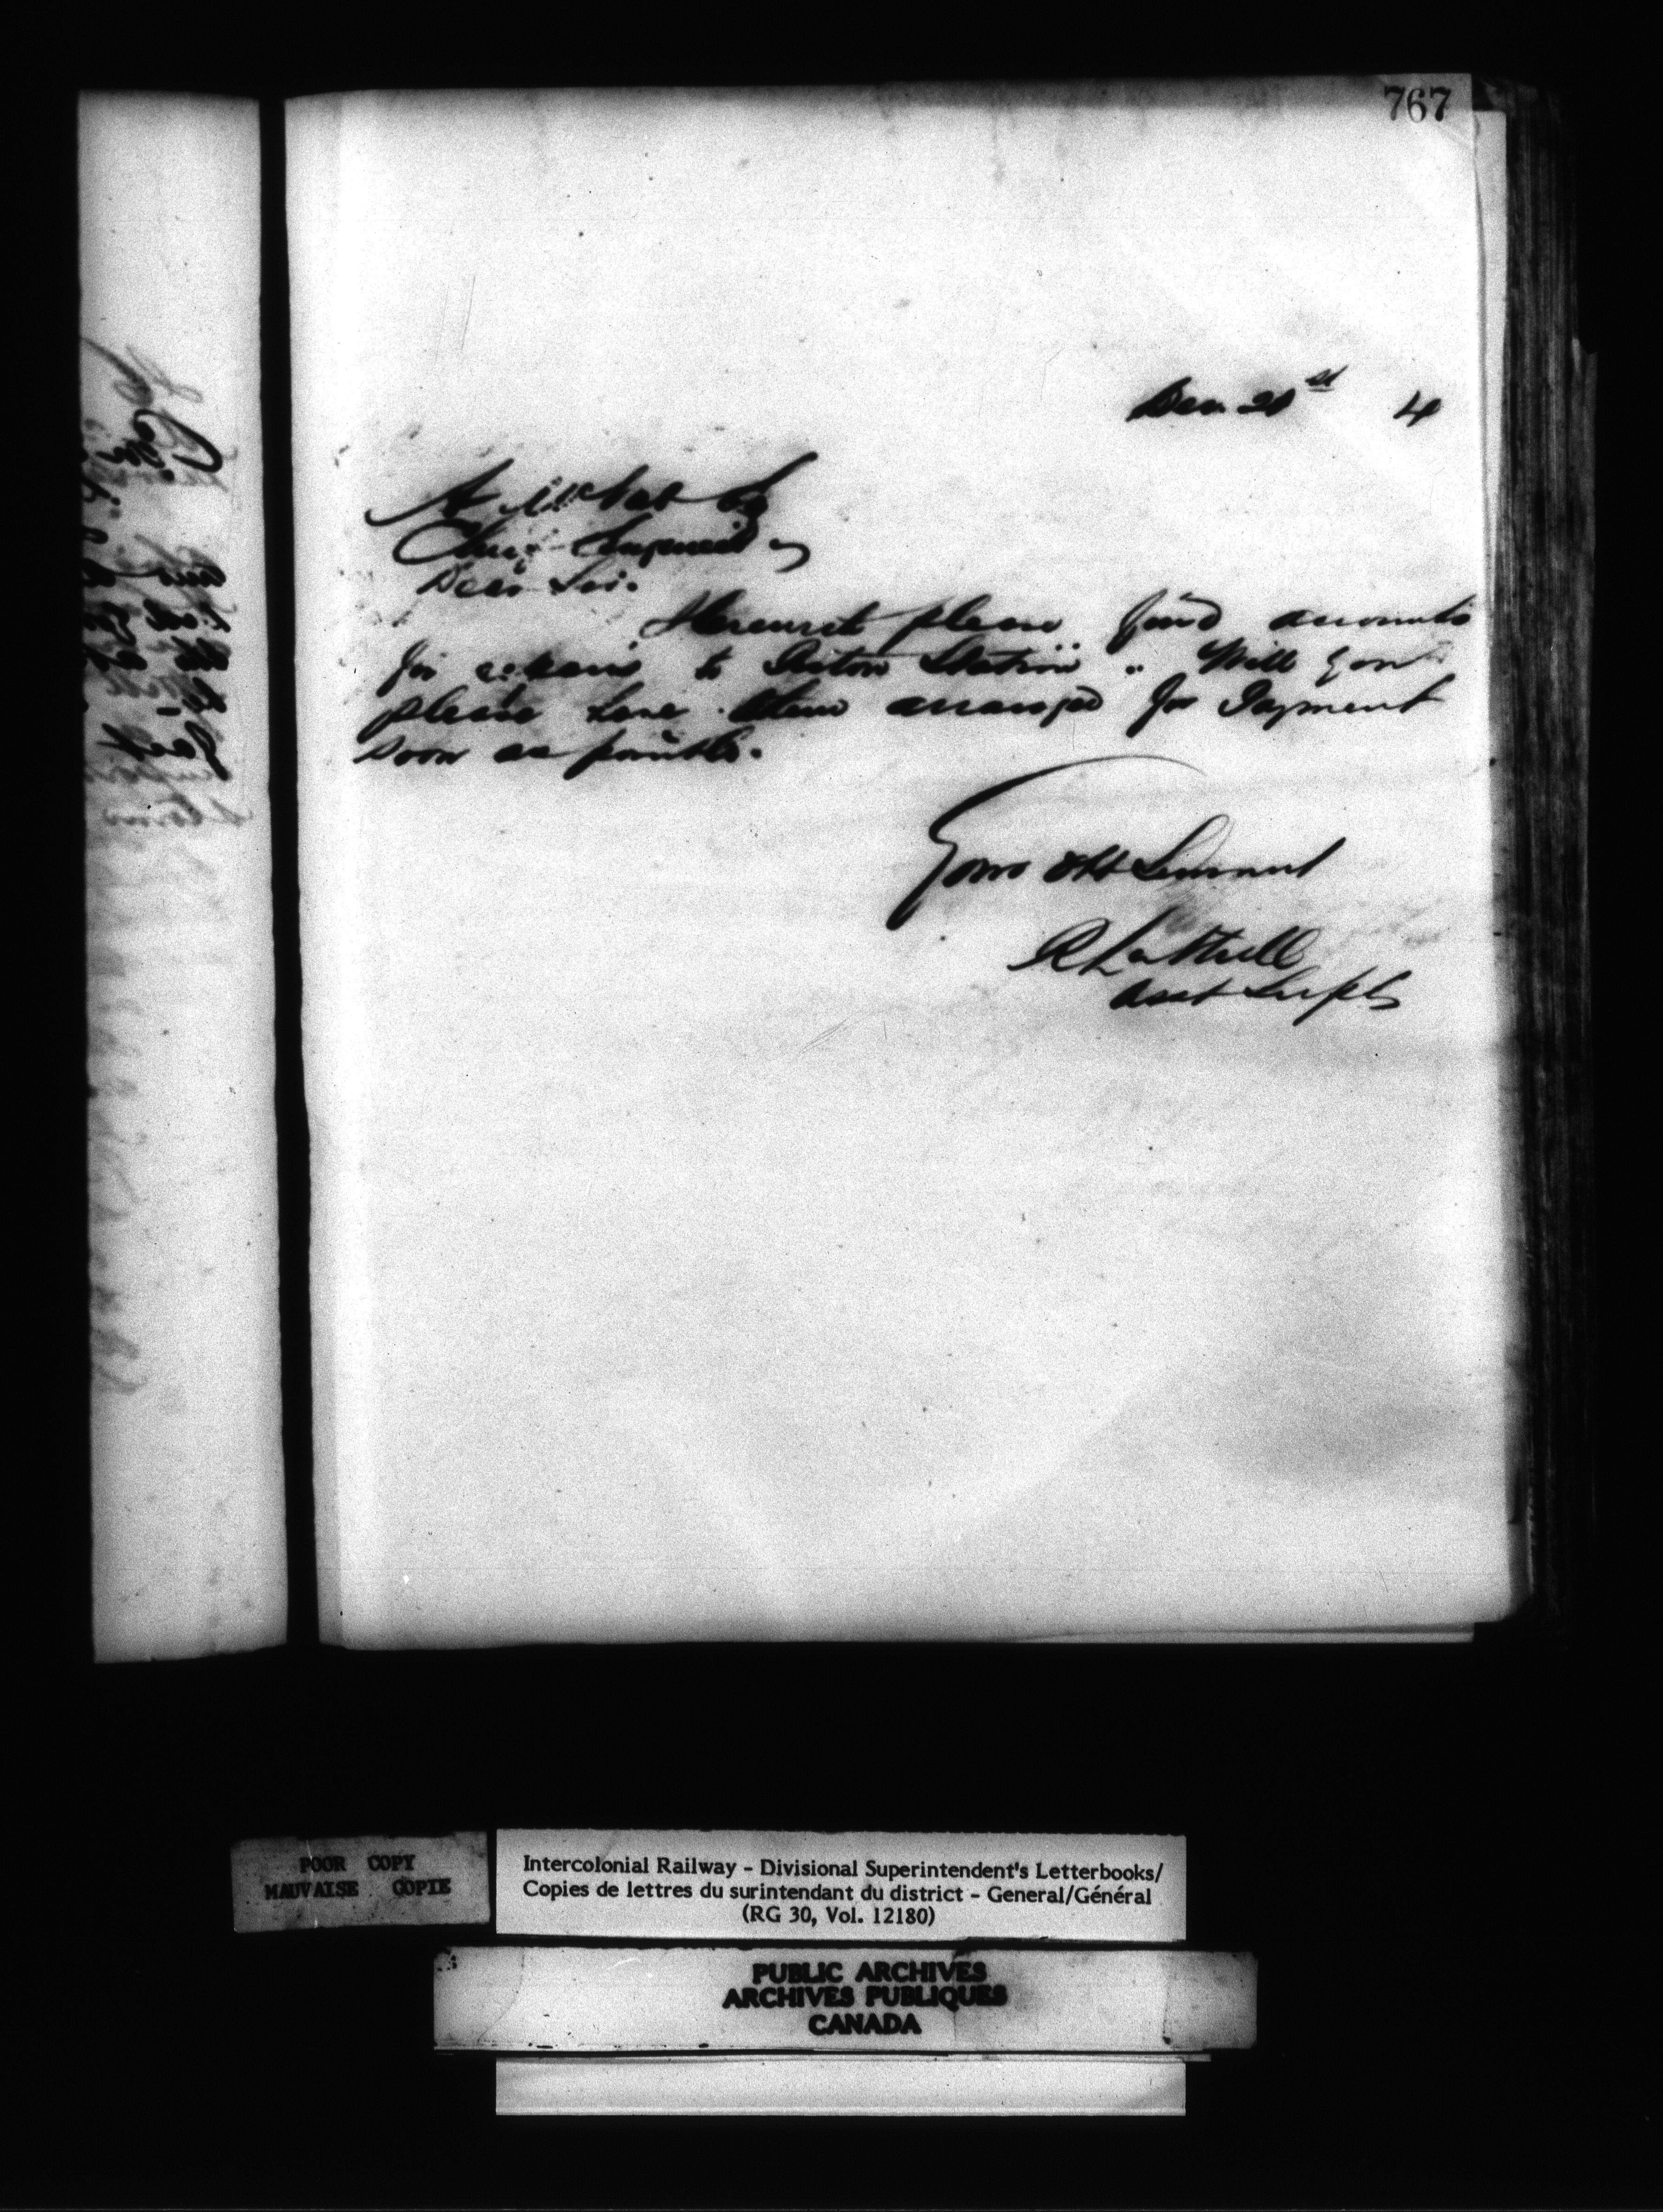 767
Dec 21st 4
A McNab Esq
Chief Engineer
Dear Sir.
Herewith please find accounts
for repairs to Acton Station .. Will you
please have them arranged for Payment
soon as possible.
Yours Obt Servant
R Luttrell
Asst Supt
POOR COPY
MAUVAISE COPIE
Intercolonial Railway - Divisional Superintendent's Letterbooks/
Copies de lettres du surintendant du district - General/Général
(RG 30, Vol. 12180)
PUBLIC ARCHIVES
ARCHIVES PUBLIQUES
CANADA